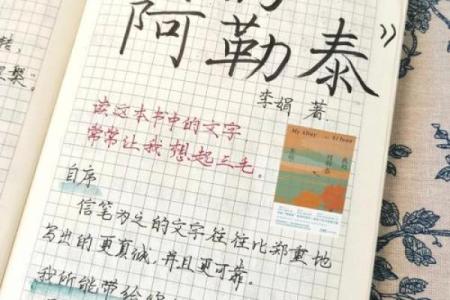 阿勒泰》
李娟 著.
读这本书中的文字
常常让我想起三毛.
自序
信笔为之的文字往往比郑重地
写出的更真诚.并且更可靠.
我所能带给